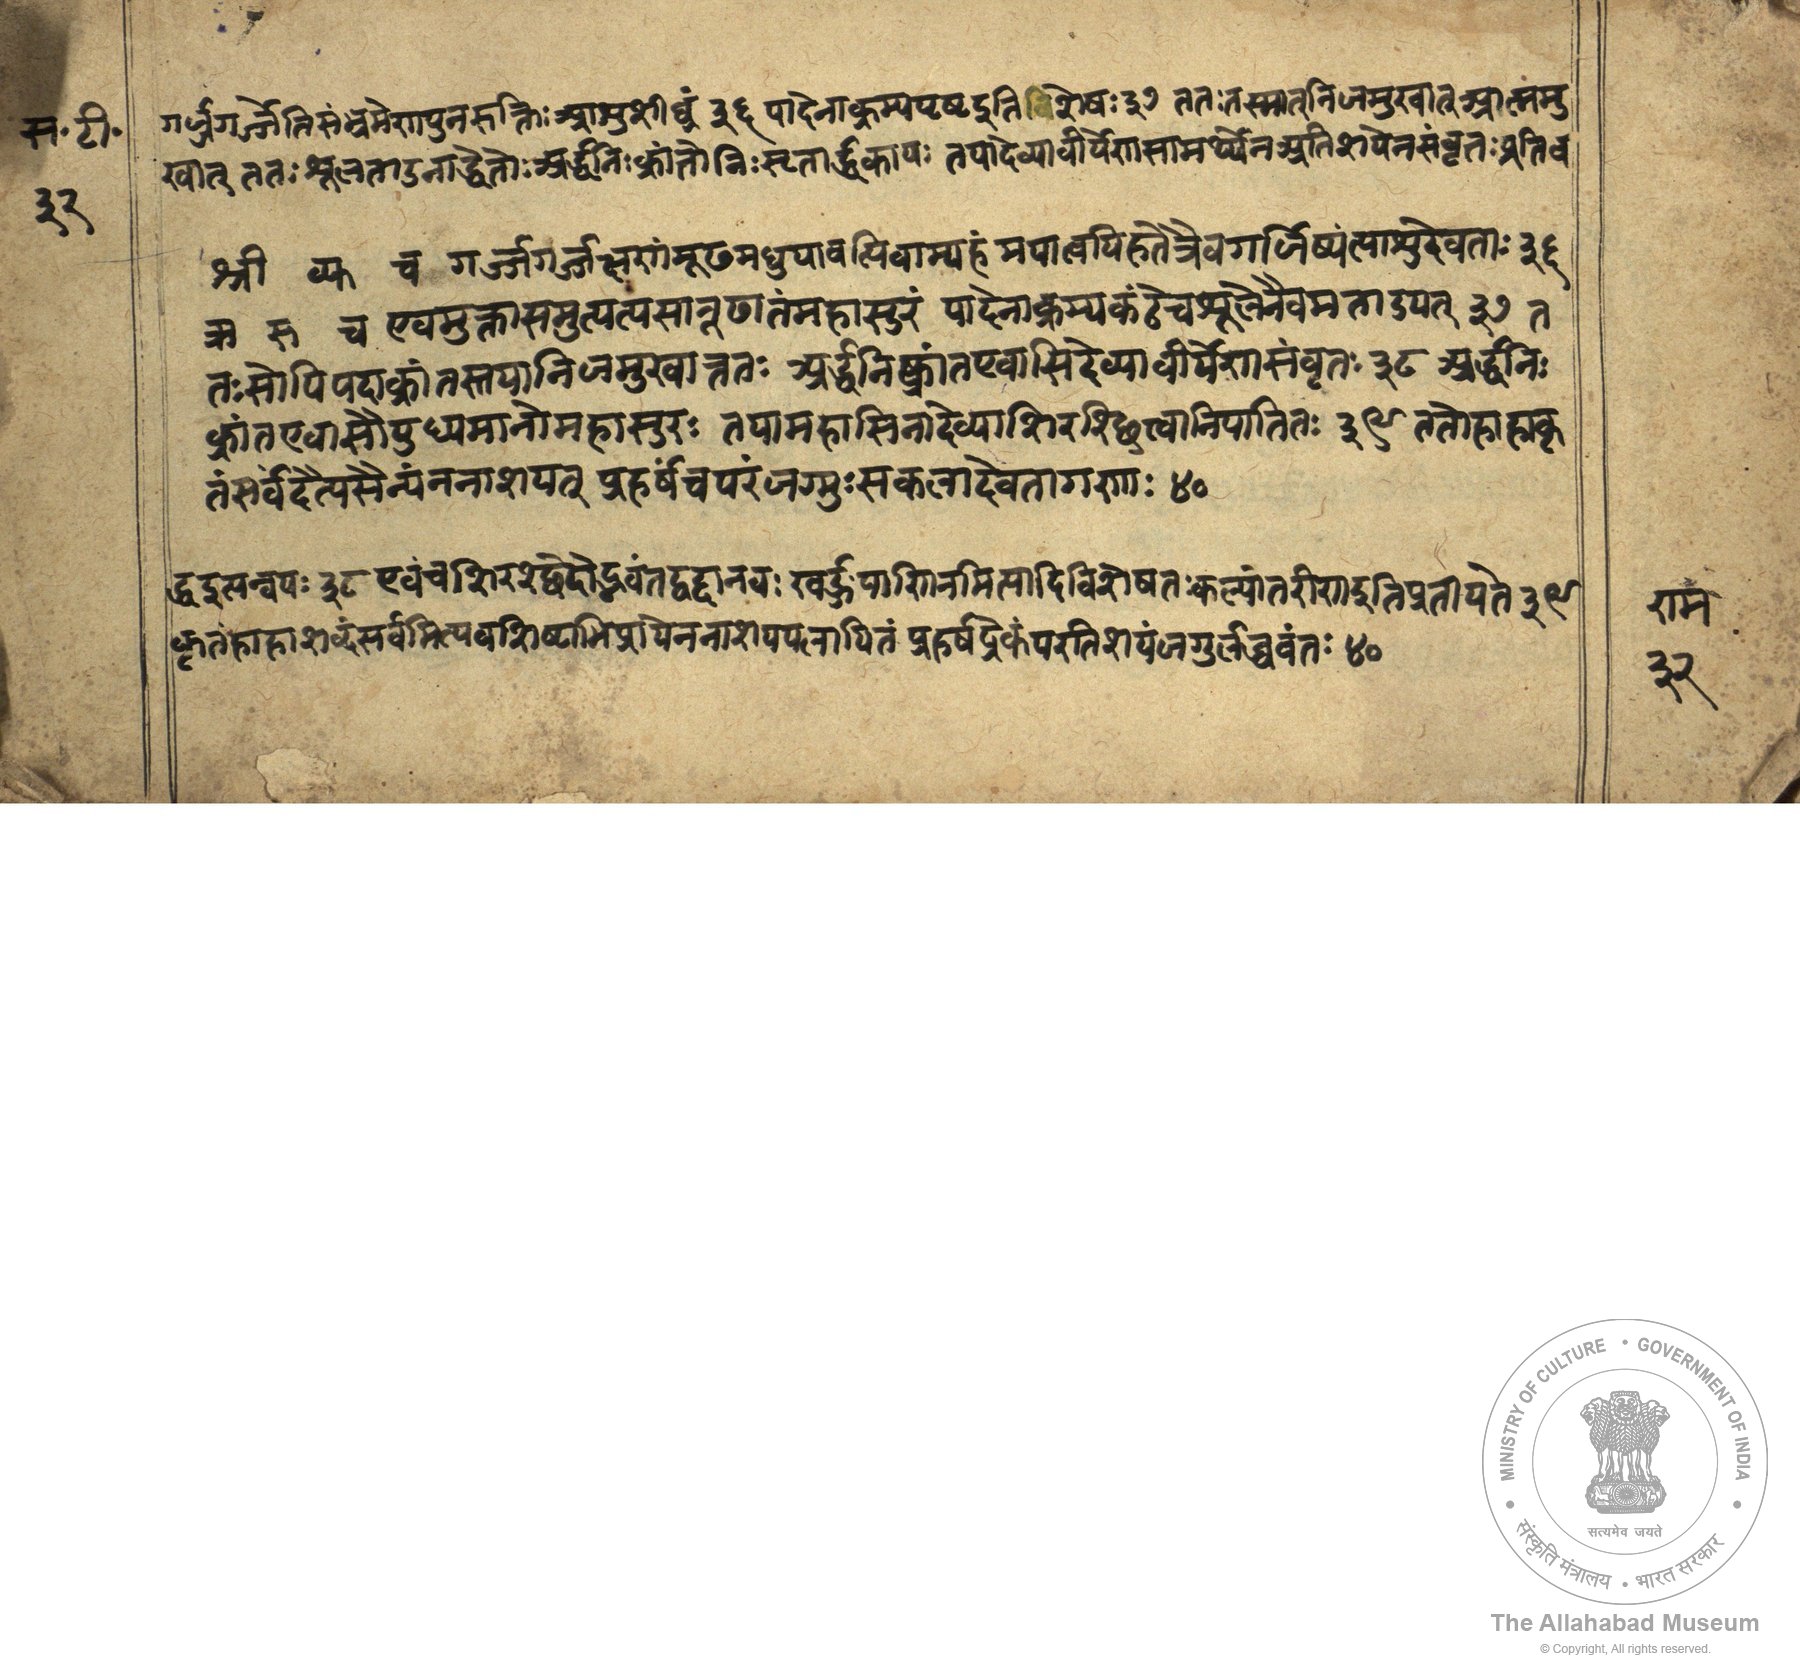 स॰ टी॰
३२
गर्ज्जगर्ज्जेतिसंभ्रमेणपुनरुक्तिः आशुशीघ्रं ३६ पादेनाक्रम्यपृष्टइति विशेषः ३७ ततःतस्मात्निजमुखात् आत्ममु
खात् ततः शूलताडनाद्धेतोः अर्द्धनिःक्रांतोनिःसृतार्द्धकायः तयादेव्यावीर्येणसामर्थ्येनअतिशयेनसंवृतःप्रतिब
श्री व्यु च गर्ज्जगर्ज्जक्षणंमूढमधुयावत्पिबाम्यहं मयात्वयिहतेत्रैवगर्जिष्यंत्याशुदेवताः ३६
ऋ रु च एवमुक्त्वासमुत्पत्यसारूढातंमहासुरं पादेनाक्रम्यकंठेचशूलेनैवमताडयत् ३७ त
तःसोपिपदाक्रांतस्तयानिजमुखात्ततः अर्द्धनिष्क्रांतएवासिदेव्यावीर्येणसंवृतः ३८ अर्द्धनिः
क्रांतएवासौयुध्यमानोमहासुरः तयामहासिनादेव्याशिरश्छित्त्वानिपातितः ३९ ततोहाहाकृ
तंसर्वंदैत्यसैन्यंननाशयत् प्रहर्षंचपरंजग्मुःसकलादेवतागणाः ४०
द्धइत्यन्वयः ३८ एवंचशिरश्छेदो खड्गपाणिनमित्यादिविशेषतःकल्पांतरीणइतिप्रतीयते ३९
कृतंहाहाशब्दंसर्वमित्यवशिष्टाभिप्रायेणननाशपपलायितं प्रहर्ष परतिशयंजग्मुर्लब्धवंतः ४०
राम
३२
MINISTRY OF CULTURE • GOVERNMENT OF INDIA
सत्यमेव जयते
संस्कृति मंत्रालय • भारत सरकार
The Allahabad Museum
© Copyright, All rights reserved.